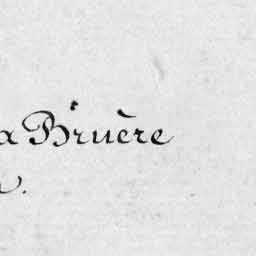 a Bruère